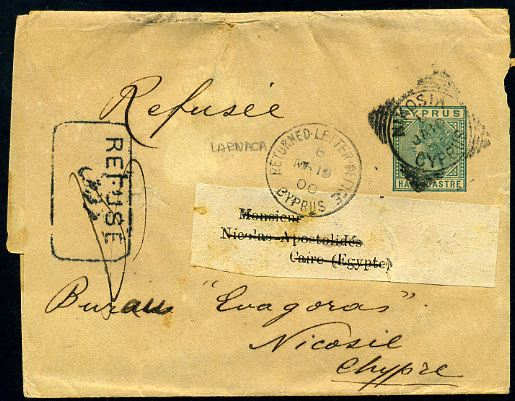 Refusée
LARNACA
RETOURNED·LETTER·OFFICE
MR 19
00
CYPRUS
NICOSIA
CYPRUS
CYPRUS
HALF PIASTRE
REFUSE
Monsieur
Nicolas Apostolidés
Caire (Egypte)
Bureau "Evagoras".
Nicosie
Chypre